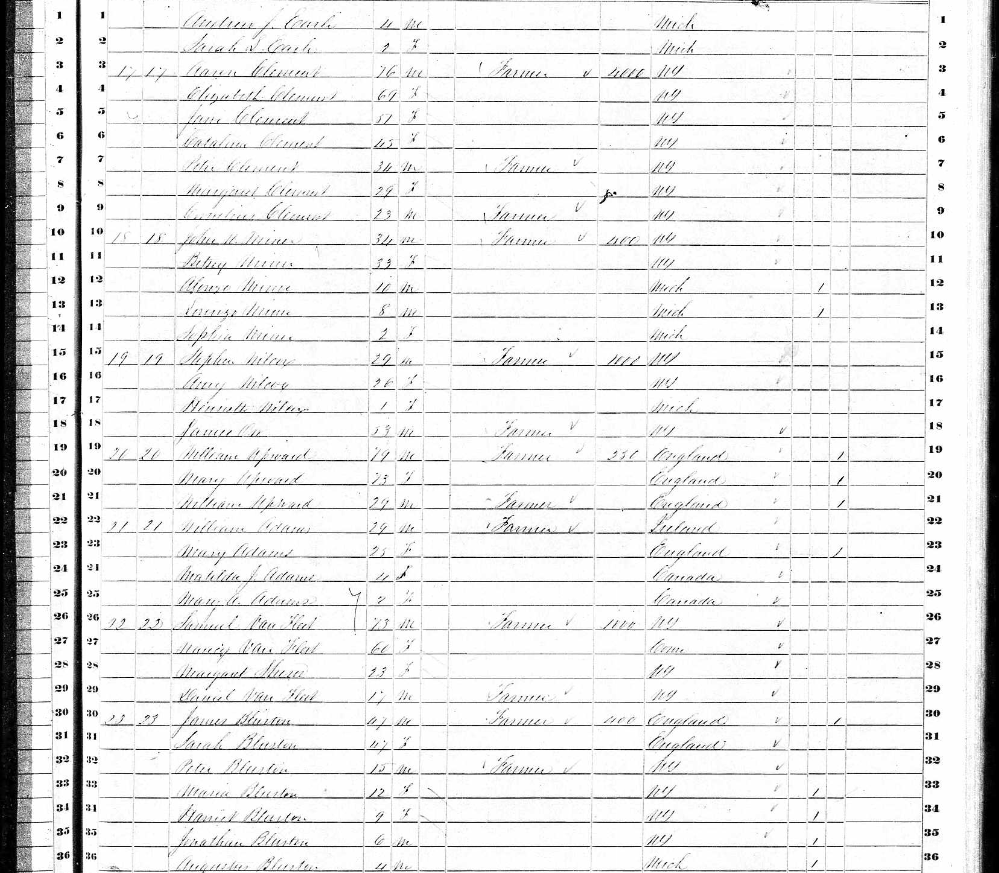 1 1 J. Earl 4 m Mich 1
2 2 Sarah Earl 2 F Mich 2
3 17 17 3 Aaron Clement 76 m Farmer 4000 NY 3
4 4 Elizabeth Clement 69 F NY 4
5 5 Jane Clement 51 F NY 5
6 6 Catalina Clement 43 F NY 6
7 7 Peter Clement 34 m Farmer NY 7
8 8 Margaret Clement 29 F NY 8
9 9 Cornelius Clement 23 m Farmer NY 9
10 18 18 10 John Miner 34 m Farmer 400 NY 10
11 11 Betsey Miner 33 F NY 11
12 12 Alonzo Miner 10 m Mich 1 12
13 13 Lorenzo Miner 8 m Mich 1 13
14 14 Sophia Miner 2 F Mich 14
15 19 19 15 Stephen Wilcox 29 m Farmer NY 15
16 16 Amy Wilcox 26 F NY 16
17 17 Wilcox 1 F Mich 17
18 18 James 53 m Farmer NY 18
19 20 20 19 William Upward 79 m Farmer 250 England 1 19
20 20 Mary Upward 73 F England 1 20
21 21 William Upward 29 m Farmer England 1 21
22 21 21 22 William Adams 29 m Farmer Ireland 22
23 23 Mary Adams 25 F England 1 23
24 24 Matilda J. Adams 4 F Canada 24
25 25 Mary A. Adams 2 F Canada 25
26 22 22 26 Samuel Van Fleet 73 m Farmer NY 26
27 27 Nancy Van Fleet 60 F Conn 27
28 28 Margaret 23 F NY 28
29 29 Daniel Van Fleet 17 m Farmer NY 29
30 23 23 30 James Blurton 47 m Farmer 400 England 1 30
31 31 Sarah Blurton 47 F England 31
32 32 Peter Blurton 15 m Farmer NY 32
33 33 Maria Blurton 12 F NY 1 33
34 34 Harriet Blurton 9 F NY 1 34
35 35 Jonathan Blurton 6 m NY 1 35
36 36 Augustus Blurton 4 m Mich 1 36